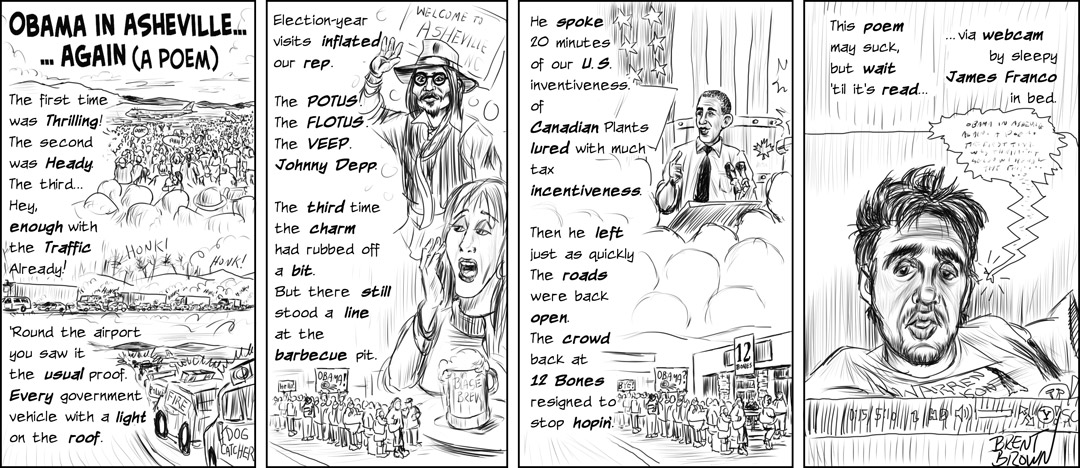 OBAMA IN ASHEVILLE...
... AGAIN (A POEM)
The first time
was Thrilling!
The second
was Heady.
The third...
Hey,
enough with
the Traffic
Already!
HONK!
HONK!
'Round the airport
you saw it
the usual proof.
Every government
vehicle with a light
on the roof.
FIRE
DOG
CATCHER
Election-year
visits inflated
our rep.
WELCOME TO
ASHEVILLE
The POTUS!
The FLOTUS!
The VEEP.
Johnny Depp.
The third time
the charm
had rubbed off
a bit.
But there still
stood a line
at the
barbecue pit.
OBAMA!
BREW
He spoke
20 minutes
of our U.S.
inventiveness.
of
Canadian Plants
lured with much
tax
incentiveness.
Then he left
just as quickly
The roads
were back
open.
The crowd
back at
12 Bones
resigned to
stop hopin'.
12
BONES
OBAMA!
This poem
may suck,
but wait
'til it's read...
...via webcam
by sleepy
James Franco
in bed.
OBAMA IN ASHEVILLE
BRENT
BROWN